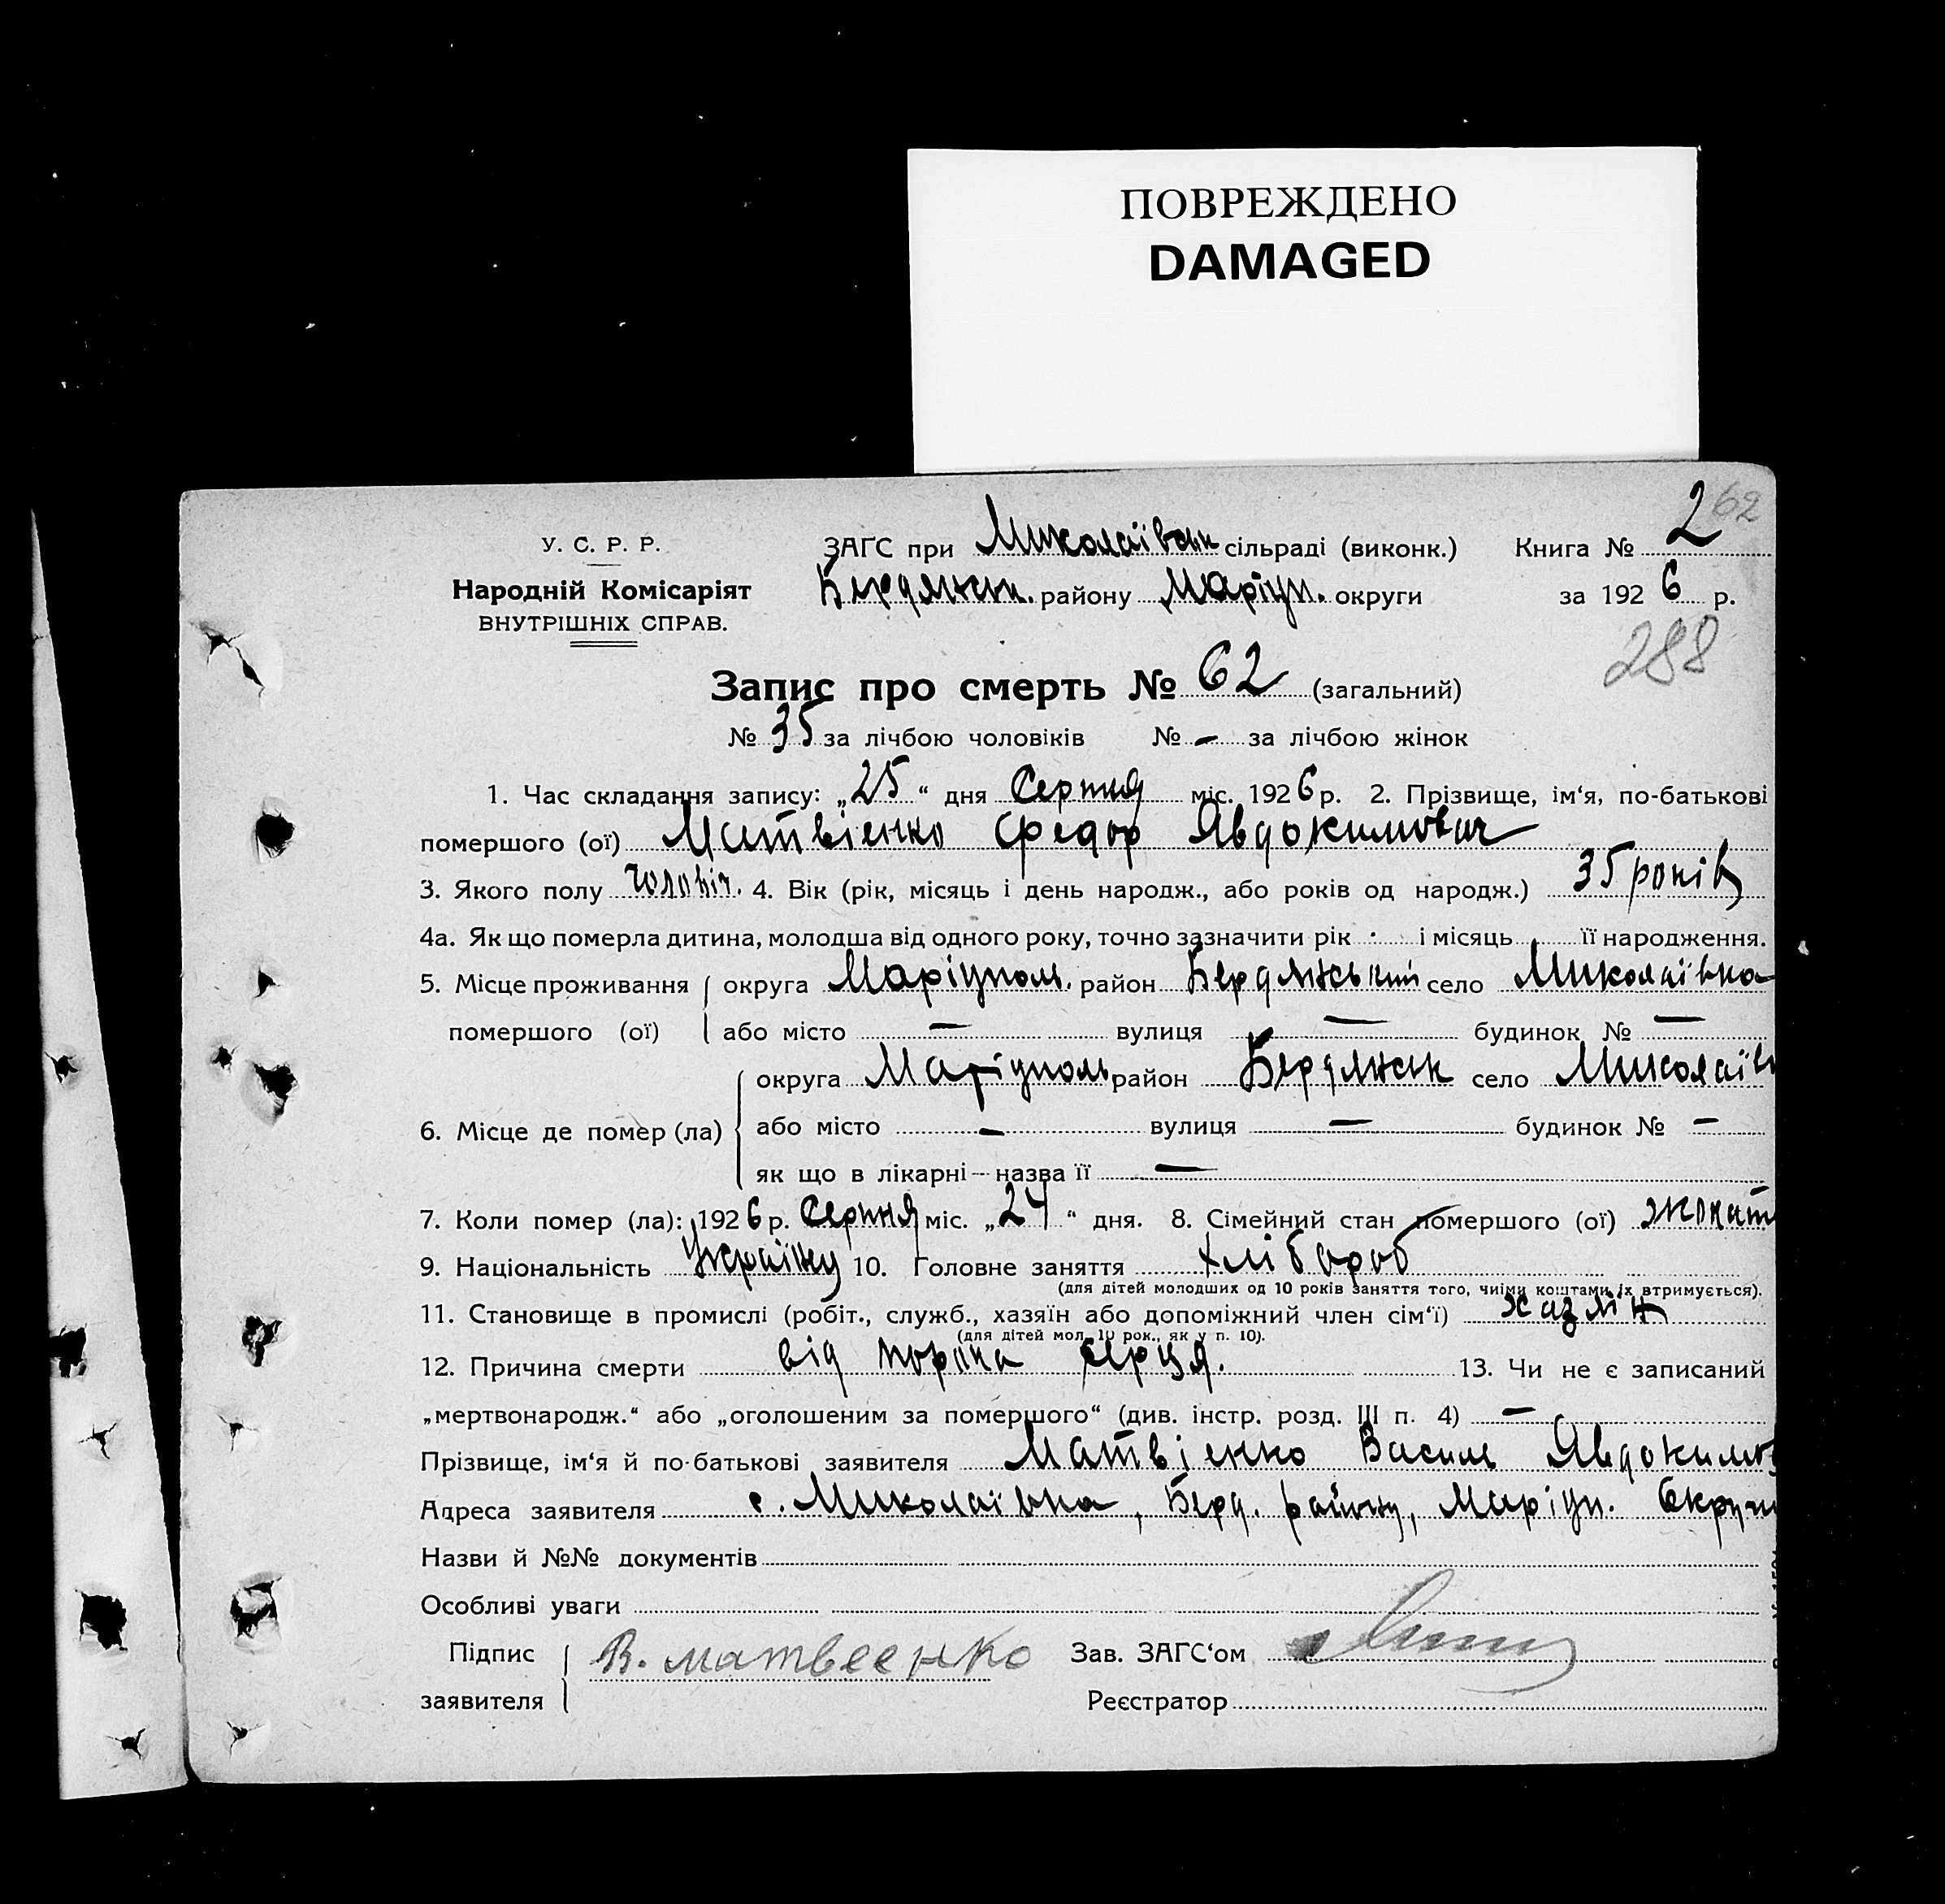 ПОВРЕЖДЕНО
DAMAGED
62
У. С. Р. Р. ЗАГС при Миколаївськ сільраді (виконк.) Книга № 2
Народній Комісаріят Бердянськ. району Маріуп. округи за 1926 р.
ВНУТРІШНІХ СПРАВ.
288
Запис про смерть № 62 (загальний)
№ 35 за лічбою чоловіків № - за лічбою жінок
1. Час складання запису: „25“ дня Серпня міс. 1926 р. 2. Прізвище, ім'я, по-батькові
помершого (ої) Матвієнко Федор Явдокимович
3. Якого полу чоловіч. 4. Вік (рік, місяць і день народж., або років од народж.) 35 років
4а. Як що померла дитина, молодша від одного року, точно зазначити рік і місяць її народження.
5. Місце проживання округа Маріуполь. район Бердянський село Миколаївка
помершого (ої) або місто — вулиця — будинок № —
округа Маріуполь район Бердянськ село Миколаїв
6. Місце де помер (ла) або місто — вулиця — будинок № —
як що в лікарні — назва її —
7. Коли помер (ла): 1926 р. Серпня міс. „24“ дня. 8. Сімейний стан помершого (ої) жонат
9. Національність 10. Головне заняття хлібороб
(для дітей молодших од 10 років заняття того, чиїми коштами їх втримується).
11. Становище в промислі (робіт., служб., хазяїн або допоміжний член сім'ї) хазяїн
(для дітей мол. 10 рок., як у п. 10).
12. Причина смерти від серця. 13. Чи не є записаний
„мертвонародж.“ або „оголошеним за помершого“ (див. інстр. розд. III п. 4) —
Прізвище, ім'я й по-батькові заявителя Матвієнко Василь Явдокимов
Адреса заявителя с. Миколаївка, Берд. району, Маріуп. Округи
Назви й №№ документів
Особливі уваги
Підпис В. Матвеенко Зав. ЗАГС'ом
заявителя Реєстратор